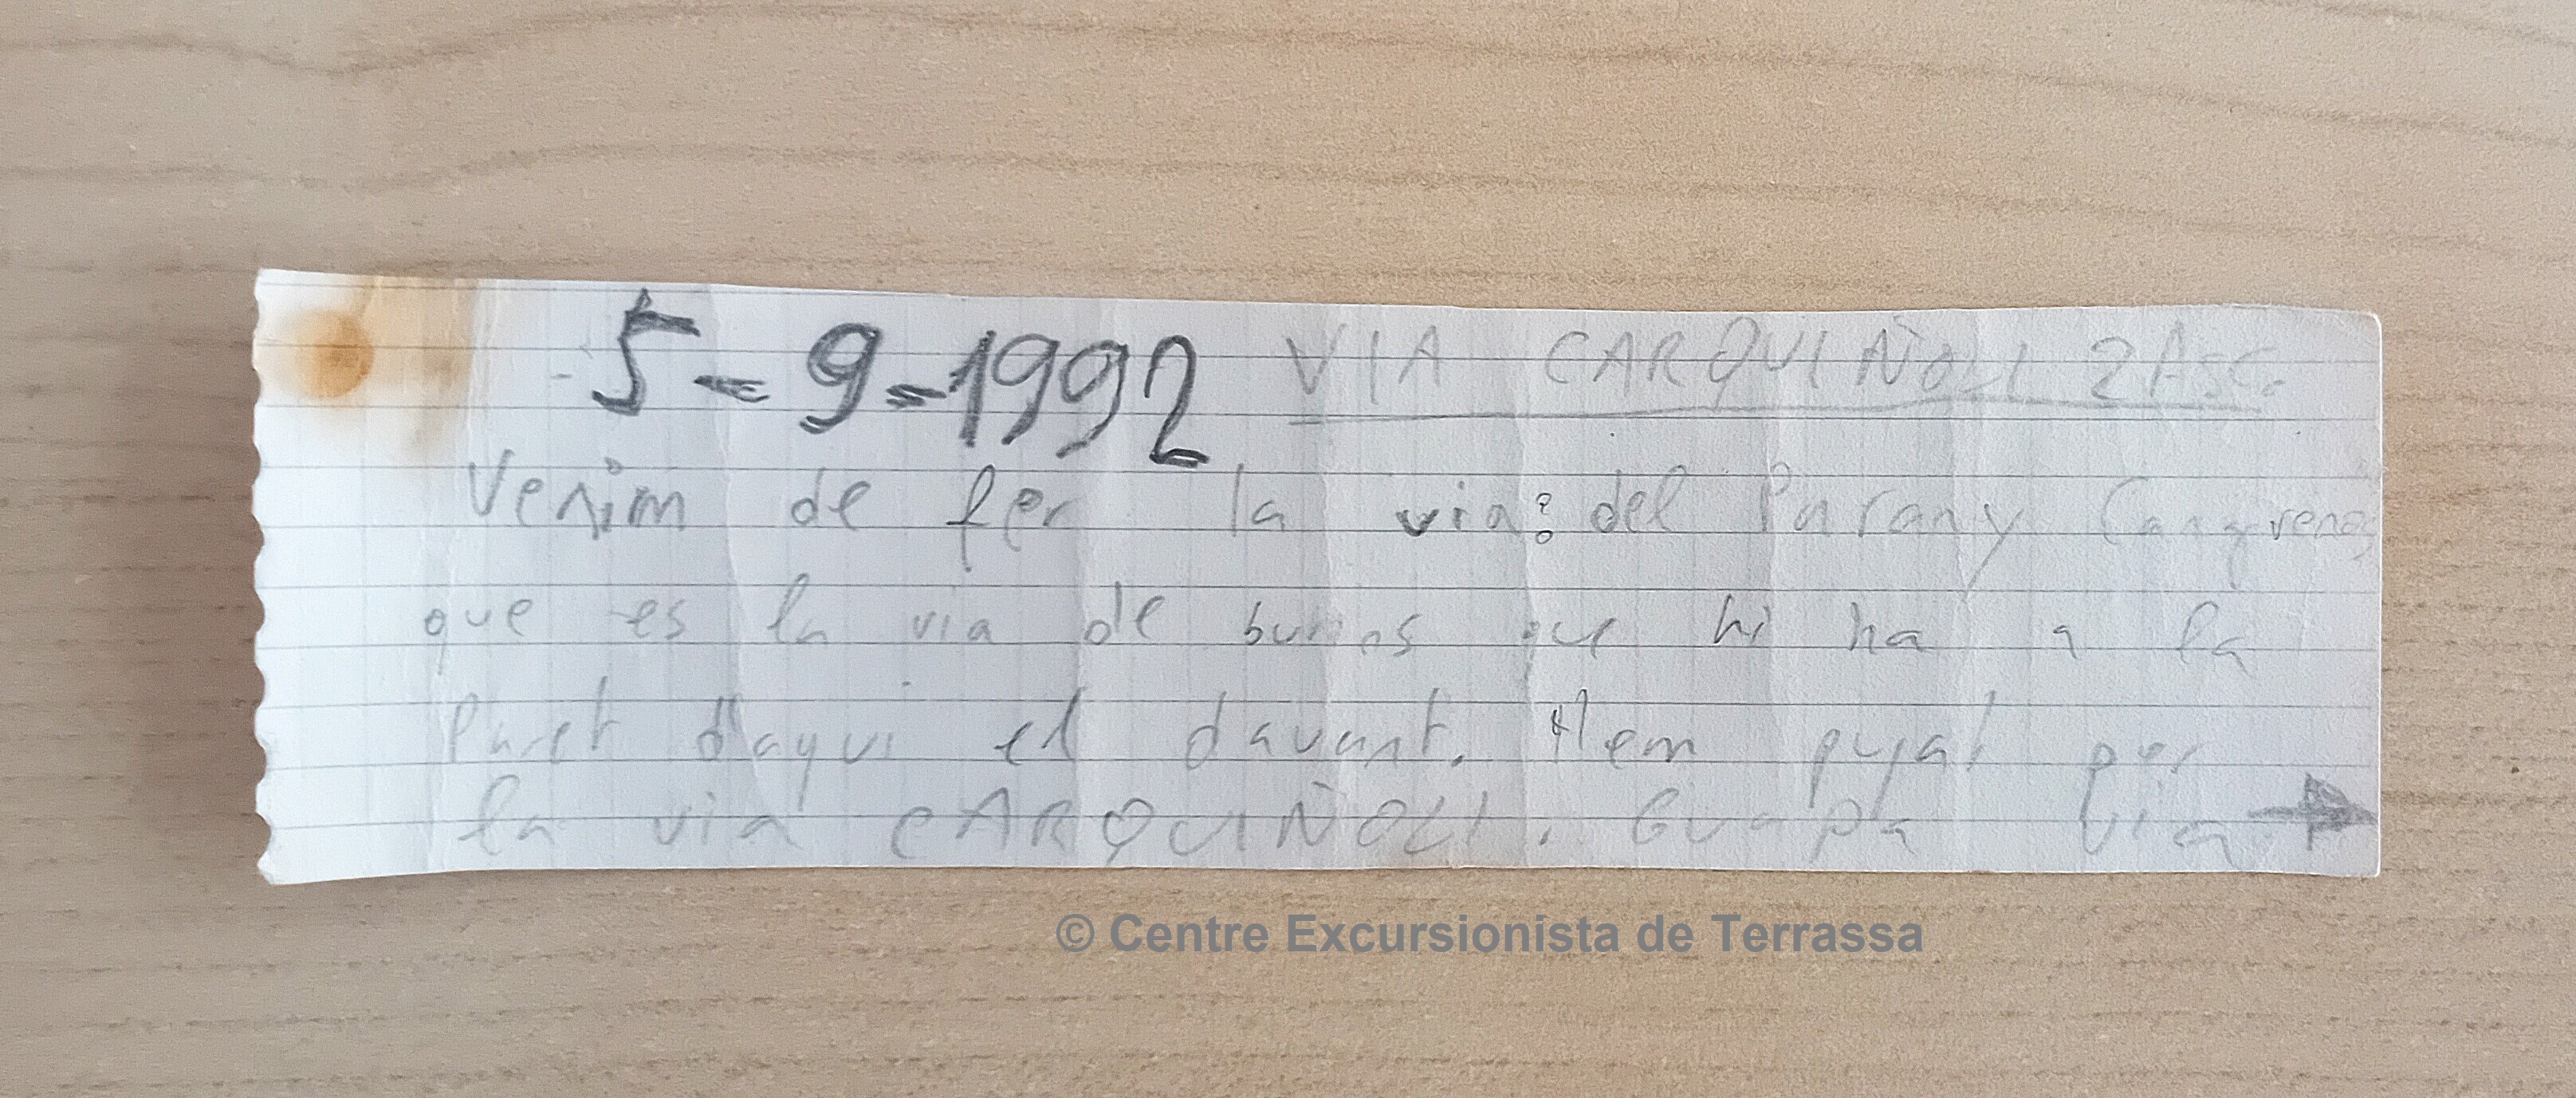 5-9-1992 VIA CARQUIÑOLI 2 ASC.
Venim de fer la via: del Parany
que es la via de burins que hi ha a la
Paret d'aqui el davant. Hem pujat per
la via CARQUIÑOLI. Guapa via →
© Centre Excursionista de Terrassa